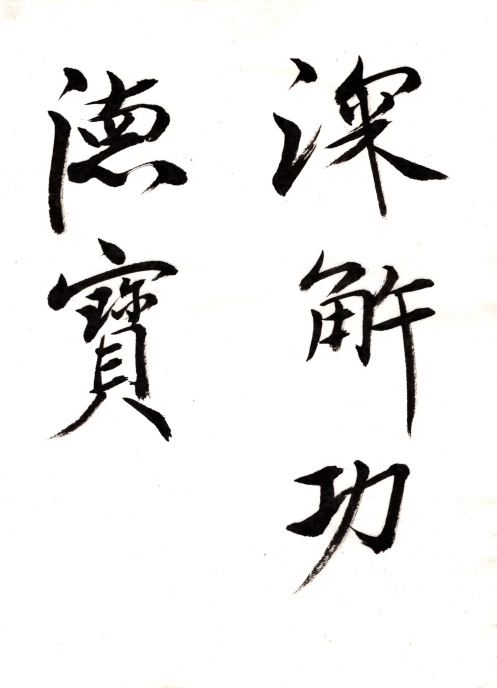 深解功
德寶